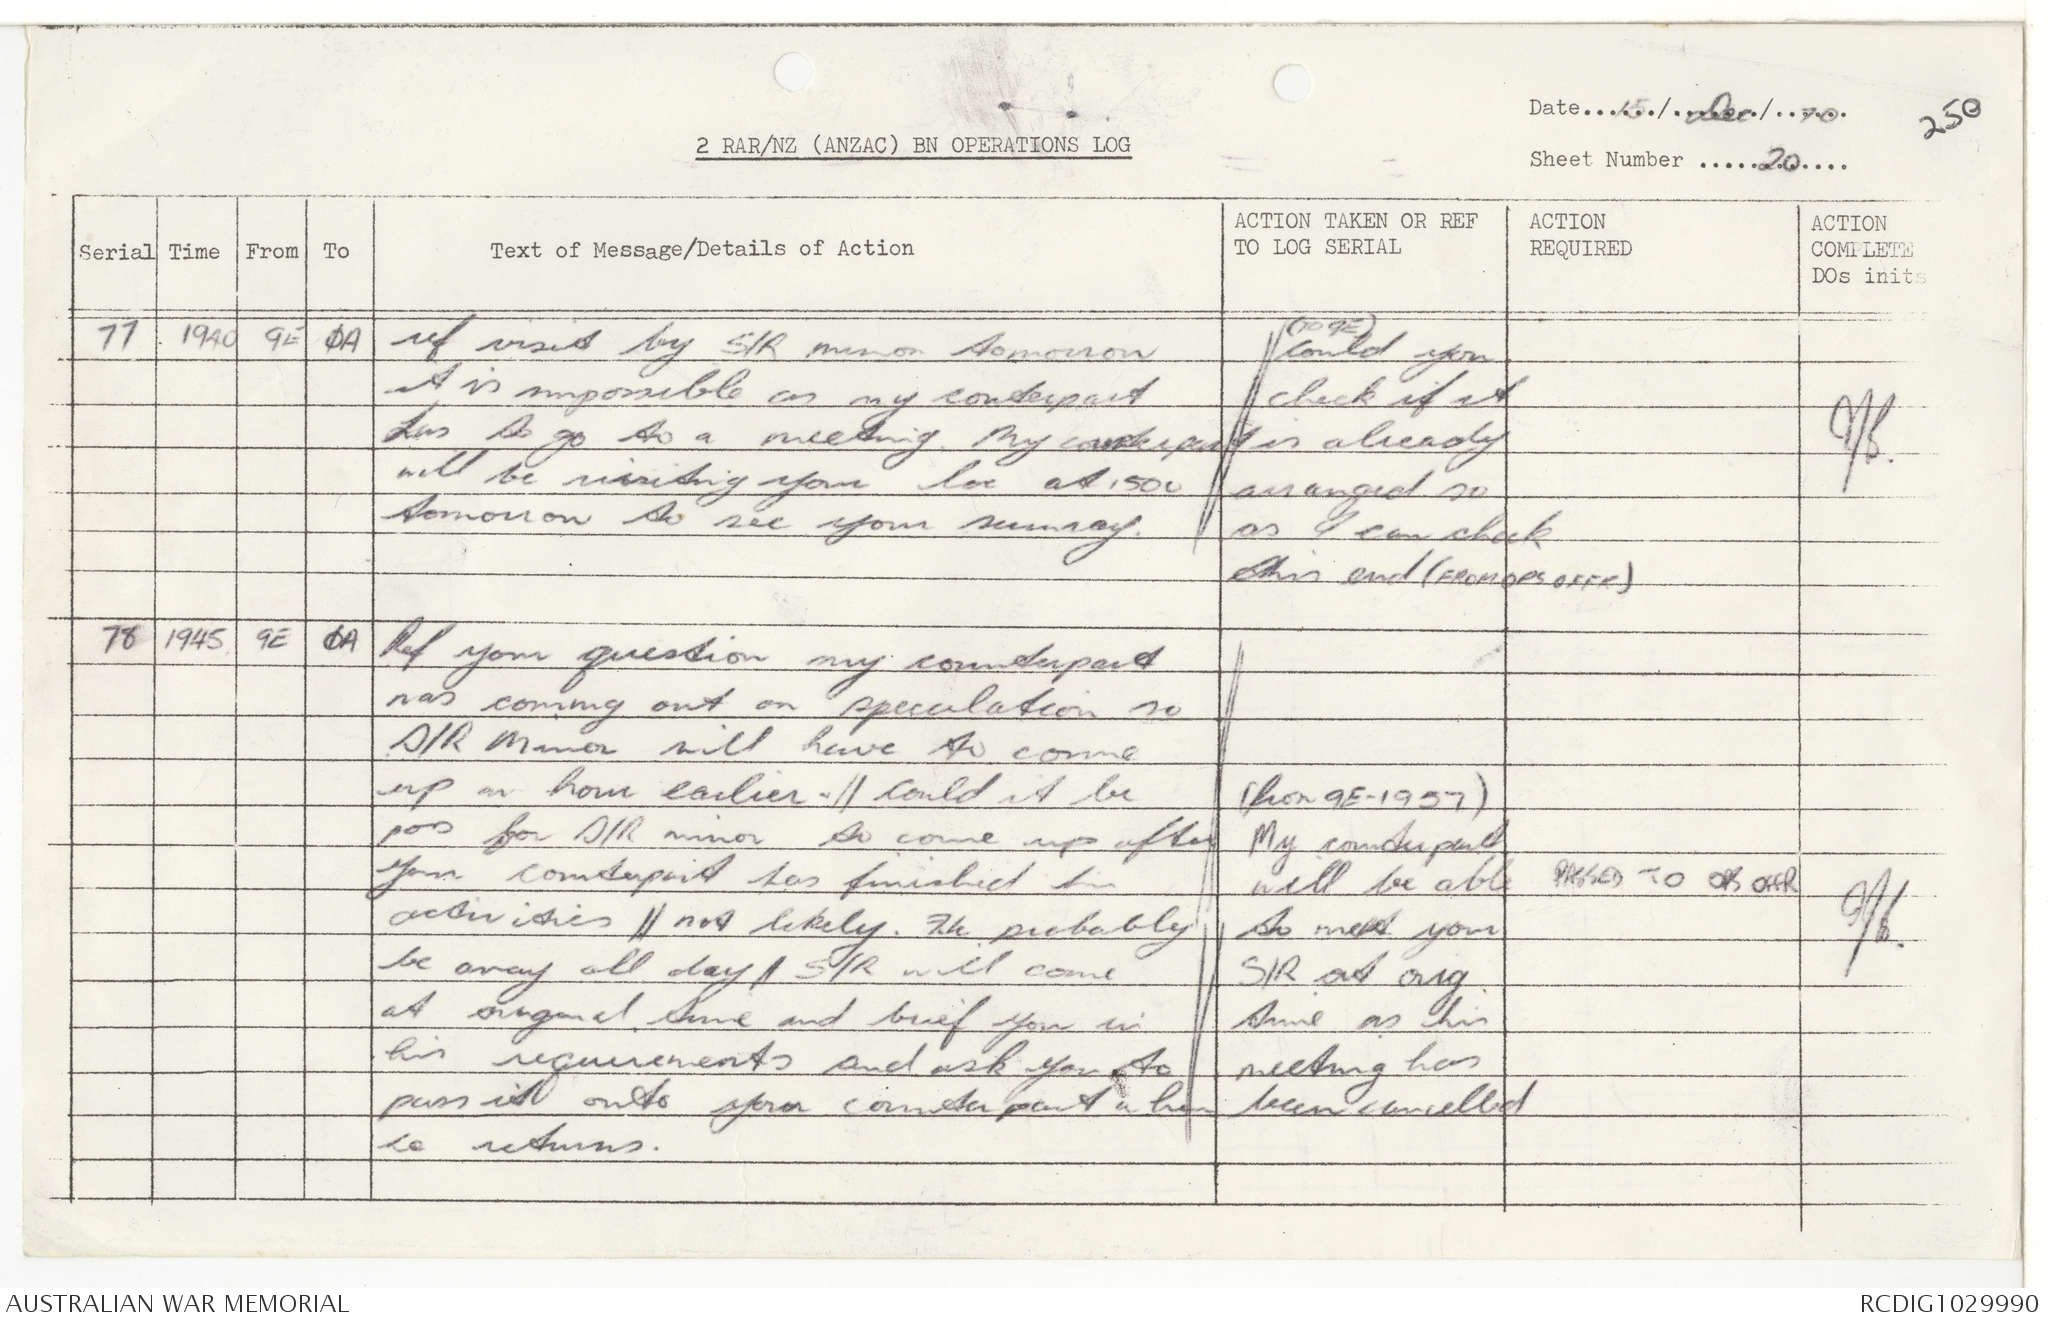 Date...15./..Dec./..70..
250
2 RAR/NZ (ANZAC) BN OPERATIONS LOG
Sheet Number .....20....
Serial Time From To Text of Message/Details of Action ACTION TAKEN OR REF TO LOG SERIAL ACTION REQUIRED ACTION COMPLETE DOs inits
77 1940 9E 0A ref visit by S/R minor tomorrow
it is impossible as my counterpart
has to go to a meeting. My counterpart
will be visiting your loc at 1500
tomorrow to see your sunray.
(TO 9E)
Could you
check if it
is already
arranged so
as I can check
this end (FROM OPS OFFR)
78 1945 9E 0A Ref your question my counterpart
was coming out on speculation so
S/R Minor will have to come
up an hour earlier - // Could it be
poss for S/R minor to come up after
your counterpart has finished his
activities // not likely. He probably
be away all day // S/R will come
at original time and brief you in
his requirements and ask you to
pass it onto your counterpart when
he returns.
(from 9E-1957)
My counterpart
will be able
to meet your
S/R at orig.
time as his
meeting has
been cancelled
PASSED TO OPS OFFR
AUSTRALIAN WAR MEMORIAL
RCDIG1029990